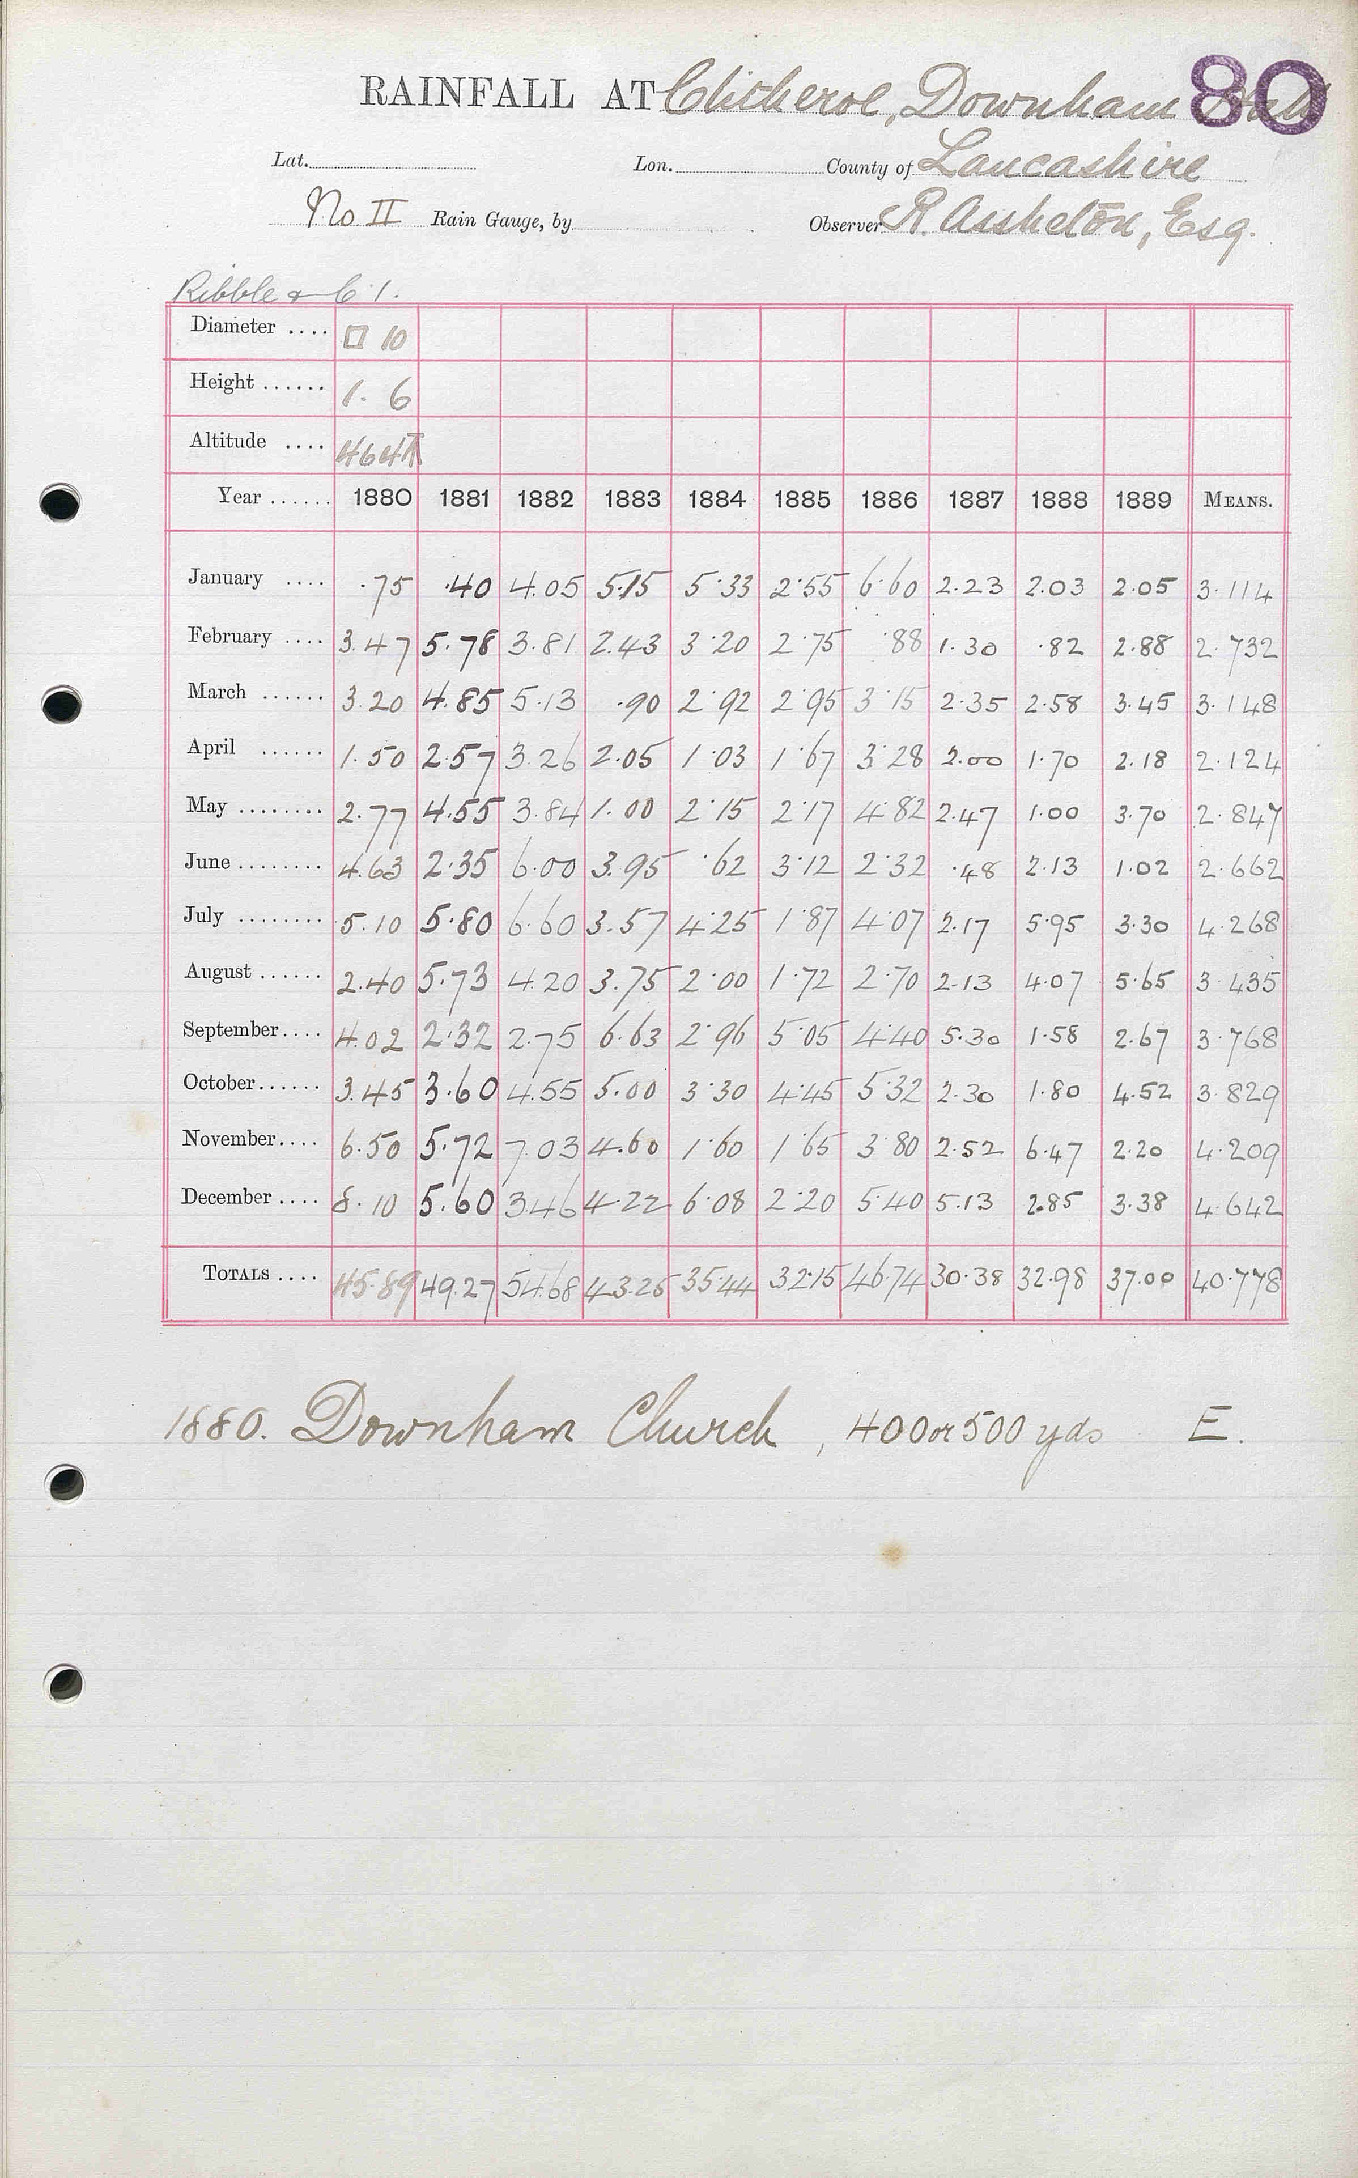 80
RAINFALL AT Clitheroe, Downham Hall
Lat. Lon. County of Lancashire
No II Rain Gauge, by Observer R. Assheton, Esq.
Ribble & C 1.
Diameter .... □ 10
Height ...... 1. 6
Altitude .... 464
Year ...... 1880 1881 1882 1883 1884 1885 1886 1887 1888 1889 MEANS.
January .... .75 .40 4.05 5.15 5.33 2.55 6.60 2.23 2.03 2.05 3.114
February .... 3.47 5.78 3.81 2.43 3.20 2.75 .88 1.30 .82 2.88 2.732
March ...... 3.20 4.85 5.13 .90 2.92 2.95 3.15 2.35 2.58 3.45 3.148
April ...... 1.50 2.57 3.26 2.05 1.03 1.67 3.28 2.00 1.70 2.18 2.124
May ........ 2.77 4.55 3.84 1.00 2.15 2.17 4.82 2.47 1.00 3.70 2.847
June ........ 4.63 2.35 6.00 3.95 .62 3.12 2.32 .48 2.13 1.02 2.662
July ........ 5.10 5.80 6.60 3.57 4.25 1.87 4.07 2.17 5.95 3.30 4.268
August ...... 2.40 5.73 4.20 3.75 2.00 1.72 2.70 2.13 4.07 5.65 3.435
September.... 4.02 2.32 2.75 6.63 2.96 5.05 4.40 5.30 1.58 2.67 3.768
October...... 3.45 3.60 4.55 5.00 3.30 4.45 5.32 2.30 1.80 4.52 3.829
November.... 6.50 5.72 7.03 4.60 1.60 1.65 3.80 2.52 6.47 2.20 4.209
December .... 8.10 5.60 3.46 4.22 6.08 2.20 5.40 5.13 2.85 3.38 4.642
TOTALS .... 45.89 49.27 54.68 43.25 35.44 32.15 46.74 30.38 32.98 37.00 40.778
1880. Downham Church, 400 or 500 yds E.